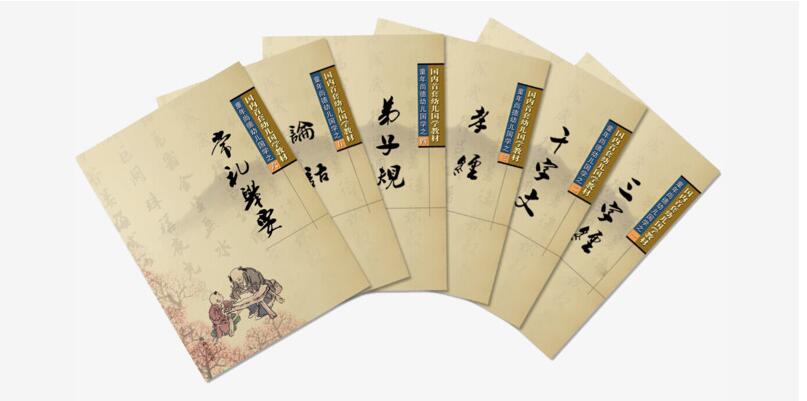 国内首套幼儿国学教材
童年尚德幼儿国学之
常礼举要
国内首套幼儿国学教材
童年尚德幼儿国学之
論語
国内首套幼儿国学教材
童年尚德幼儿国学之
弟子规
国内首套幼儿国学教材
童年尚德幼儿国学之
孝經
国内首套幼儿国学教材
童年尚德幼儿国学之
千字文
国内首套幼儿国学教材
童年尚德幼儿国学之
三字經